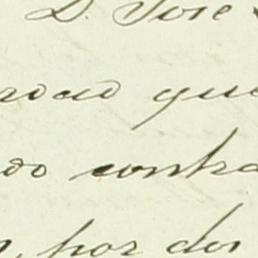 D. José
que
do contra
por dos